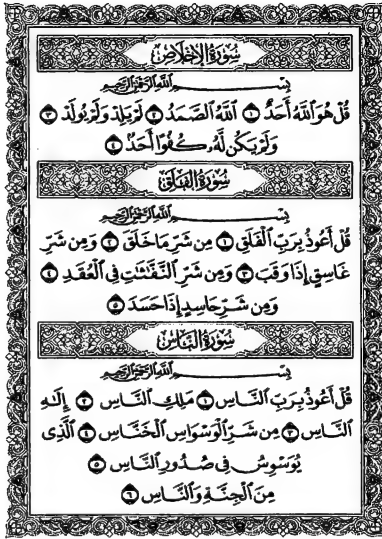 سُورَةُ الإِخْلَاصِ
بِسْمِ اللَّهِ الرَّحْمَٰنِ الرَّحِيمِ
قُلْ هُوَ اللَّهُ أَحَدٌ ١ اللَّهُ الصَّمَدُ ٢ لَمْ يَلِدْ وَلَمْ يُولَدْ ٣
وَلَمْ يَكُن لَّهُۥ كُفُوًا أَحَدٌ ٤
سُورَةُ الْفَلَقِ
بِسْمِ اللَّهِ الرَّحْمَٰنِ الرَّحِيمِ
قُلْ أَعُوذُ بِرَبِّ الْفَلَقِ ١ مِن شَرِّ مَا خَلَقَ ٢ وَمِن شَرِّ
غَاسِقٍ إِذَا وَقَبَ ٣ وَمِن شَرِّ النَّفَّاثَاتِ فِي الْعُقَدِ ٤
وَمِن شَرِّ حَاسِدٍ إِذَا حَسَدَ ٥
سُورَةُ النَّاسِ
بِسْمِ اللَّهِ الرَّحْمَٰنِ الرَّحِيمِ
قُلْ أَعُوذُ بِرَبِّ النَّاسِ ١ مَلِكِ النَّاسِ ٢ إِلَٰهِ
النَّاسِ ٣ مِن شَرِّ الْوَسْوَاسِ الْخَنَّاسِ ٤ الَّذِي
يُوَسْوِسُ فِي صُدُورِ النَّاسِ ٥
مِنَ الْجِنَّةِ وَالنَّاسِ ٦